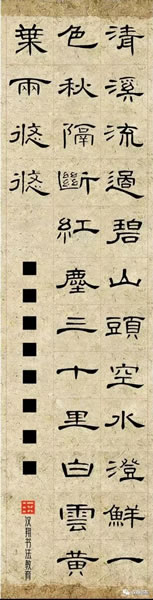 清溪流過碧山頭空水澄鮮一
色秋隔斷紅塵三十里白雲黃
葉兩悠悠
■■■■■■■
汉翔书法教育